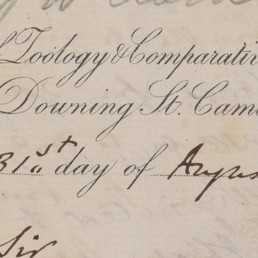 Zoology & Comparativ
Downing St. Cam
31st day of Augus
Sir